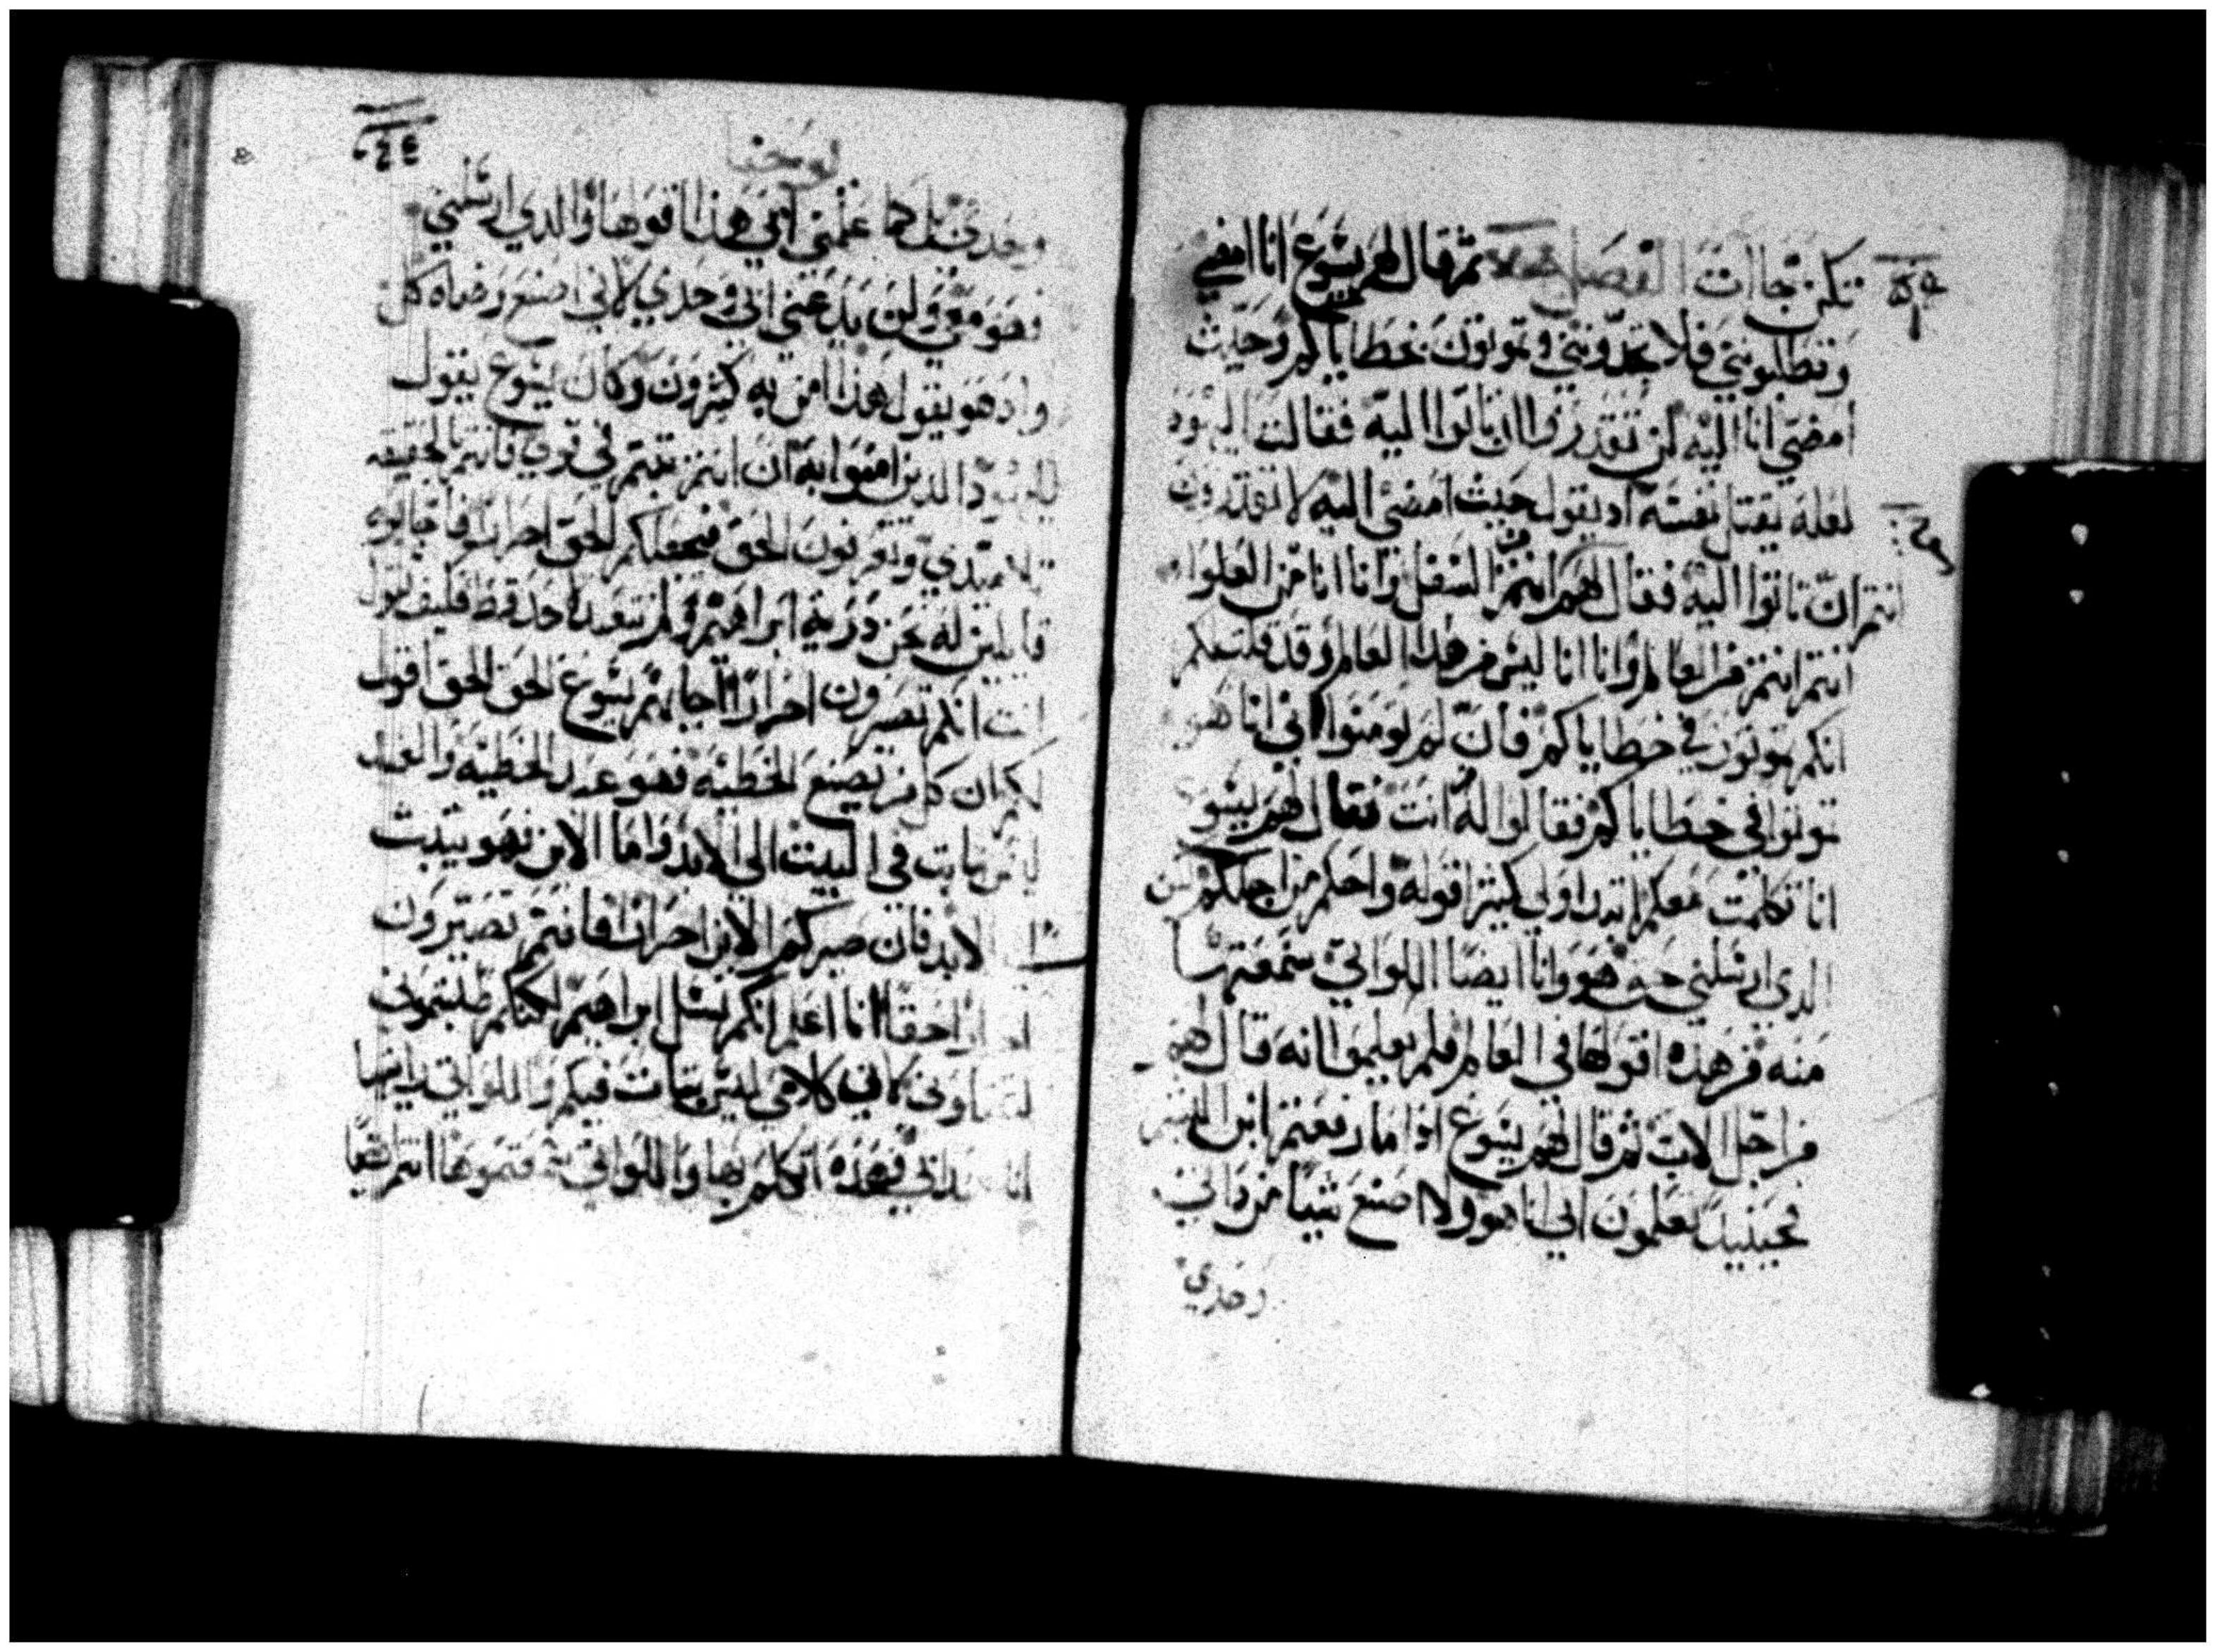 تكن جاات الفصل ثم قال لهم يسوع انا امضي
وتطلبونني فلا تجدونني وتموتون بخطاياكم وحيث
امضي انا اليه لن تقدروا ان تاتوا اليه فقالت اليهود
لعله يقتل نفسه اد يقول حيث امضي اليه لا تقدرون
انتم ان تاتوا اليه فقال لهم انتم من السفل وانا انا من العلوا
انتم انتم من العالم وانا انا ليس من هدا العالم وقد قلت لكم
انكم تموتون في خطاياكم فان لم تومنوا اني انا هو
تموتوا في خطاياكم فقالوا له من انت فقال لهم يسوع
انا تكلمت معكم ابتدا ولي كثيرا قوله واحكم من اجلكم لكن
الدي ارسلني حق هو وانا ايضا اللواتي سمعتها
منه فهذه اقولها في العالم فلم يعلموا انه قال لهم
من اجل الاب ثم قال لهم يسوع اذا ما رفعتم ابن البشر
فحينيد تعلمون اني انا هو ولا اصنع شيا من داتي
وحدي
يوحنا
وحدي بل كما علمني ابي هذا اقولها والدي ارسلني
فهو معي ولن يدعني ابي وحدي لاني اصنع رضاه كل
واد هو يقول هذا امن به كثيرون وكان يسوع يقول
لليهود الدين امنوا به ان انتم ثبتم في قولي فانتم بالحقيقه
تلاميدي وتعرفون الحق فيجعلكم الحق احرارا فاجابوه
قايلين له نحن درية ابراهيم ولم نتعبد لاحد قط فكيف تقول
انت انكم تصيرون احرارا اجابهم يسوع الحق الحق اقول
لكم ان كل من يصنع الخطيه فهو عبد للخطيه والعبد
ليس يثبت في البيت الي الابد واما الابن فهو يثبت
الي الابد فان صيركم الابن احرارا فانتم تصيرون
احرارا حقا انا اعلم انكم نسل ابراهيم لكنكم طلبتموني
لتقتلوني لان كلامي ليس بثابت فيكم واللواتي رايتها
انا عند ابي فهذه اتكلم بها واللواتي سمعتموها انتم ايضا